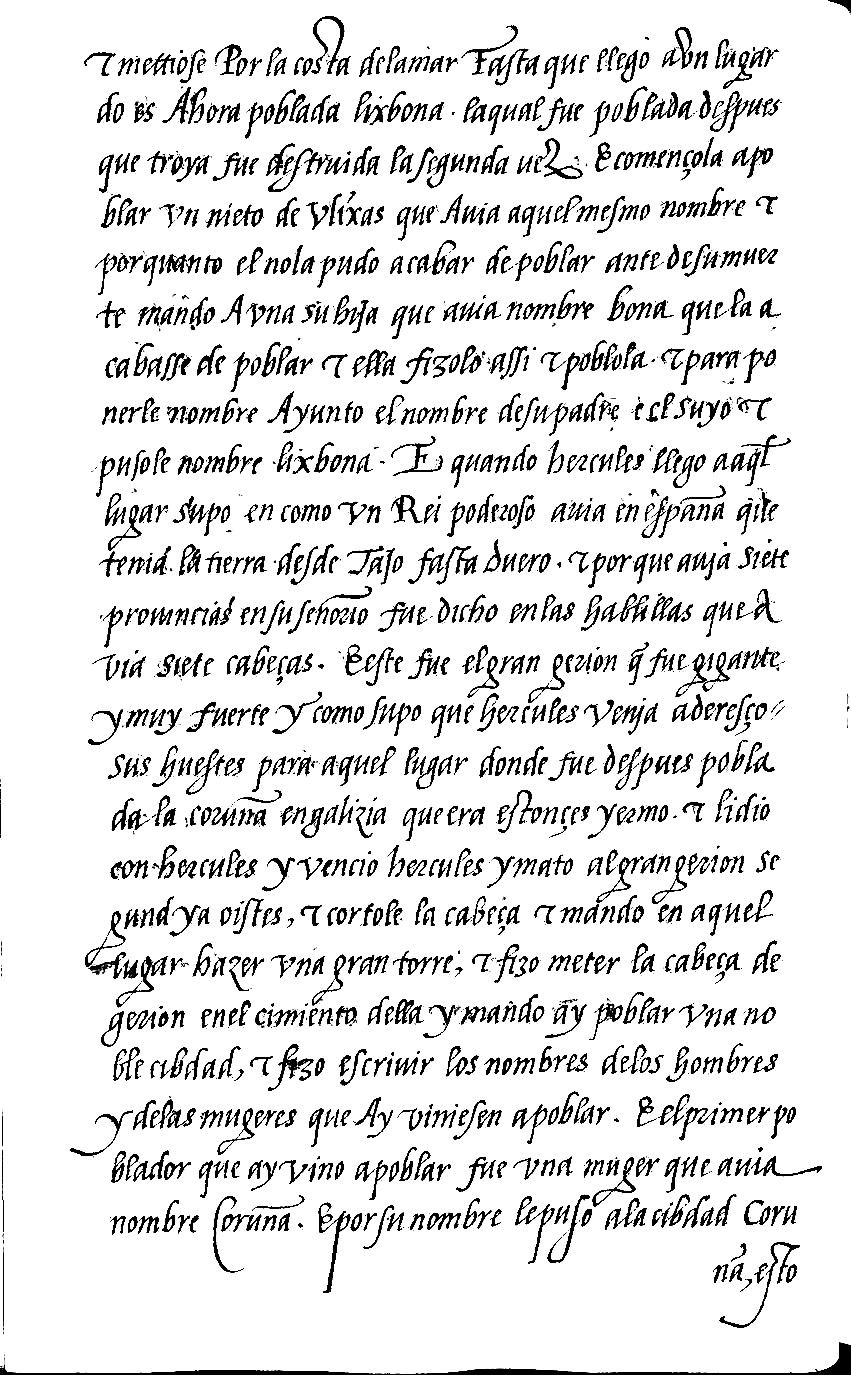 τ mettiose Por la costa delamar Fasta que llego a vn lugar
do es Ahora poblada lixbona. laqual fue poblada despues
que troya fue destruida la segunda vez. E començola apo
blar vn nieto de vlixas que Auia aquel mesmo nombre τ
porquanto el nola pudo acabar de poblar ante desumuer
te mando A vna su hija que auia nombre bona que la a
cabasse de poblar τ ella fizolo assi τ poblola. τ para po
nerle nombre Ayunto el nombre desupadre e el suyo τ
pusole nombre lixbona. E quando hercules llego a aq̃l
lugar supo en como vn Rei poderoso auia en españa que
tenia la tierra desde Tajo fasta duero. τ porque auia siete
prouincias ensu señorio fue dicho enlas hablillas que A
via siete cabeças. E este fue el gran gerion q̃ fue gigante
y muy fuerte y como supo que hercules venja aderesço
sus huestes para aquel lugar donde fue despues pobla
da la coruña en galizia que era estonçes yermo. τ lidio
con hercules y vencio hercules y mato al gran gerion se
gund ya oistes, τ cortole la cabeça τ mando en aquel
lugar hazer vna gran torre, τ fizo meter la cabeça de
gerion enel cimiento della y mando ay poblar vna no
ble cibdad, τ fizo escriuir los nombres delos hombres
y delas mugeres que Ay viniesen a poblar. E el primer po
blador que ay vino a poblar fue vna muger que auia
nombre Coruña. E por su nombre lepuso ala cibdad Coru
ña, esto